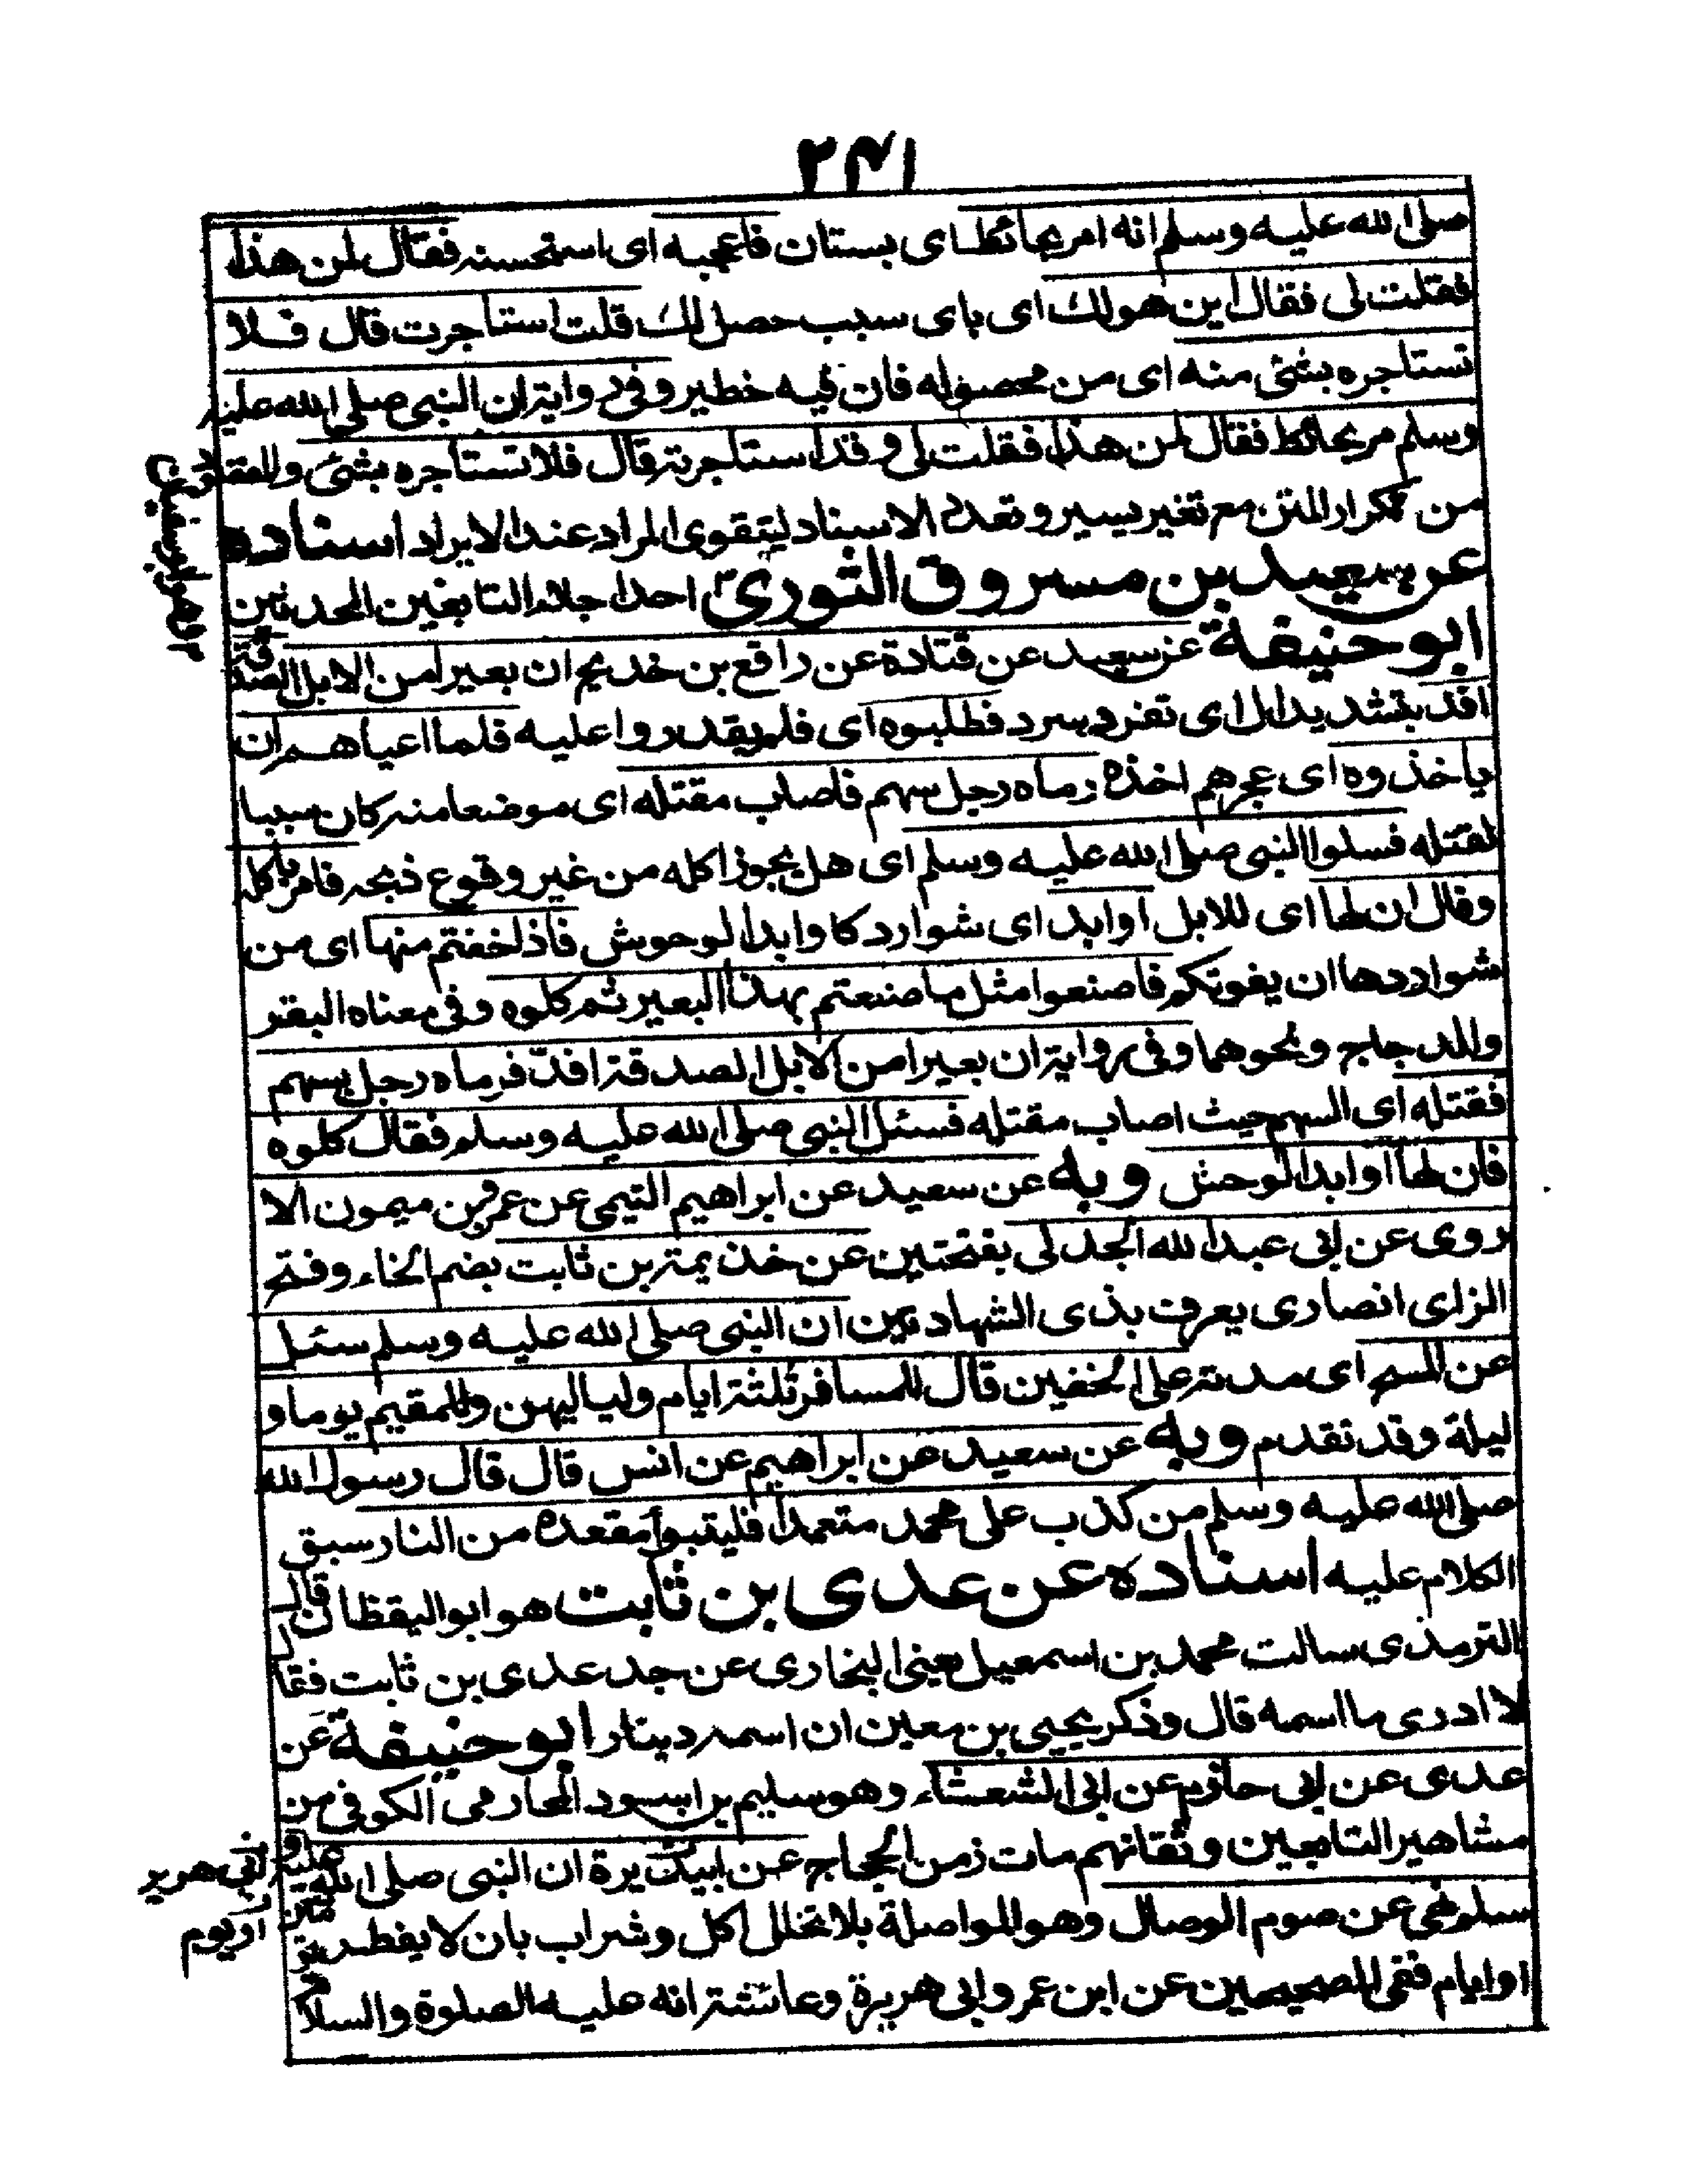 ٢٤١
صلى الله عليه وسلم انه امر بحائط اى بستان فاعجبه اى استحسنه فقال لمن هذا
فقلت لى فقال اين هو لك اى باى سبب حصل لك قلت استاجرت قال فلا
تستاجره بشئ منه اى من محصوله فان فيه خطير وفى رواية ان النبى صلى الله عليه
وسلم مر بحائط فقال لمن هذا فقلت لى وقد استاجرته قال فلا تستاجره بشئ والمقصود
من تكرار المتن مع تغير يسير وتعدد الاسناد ليتقوى المراد عند الايراد اسناده
عن سعيد بن مسروق الثورى احد اجلاء التابعين المحدثين
ابو حنيفة عن سعيد عن قتادة عن رافع بن خديج ان بعيرا من الابل الصدقة
افند بتشديد ال اى تفرد بسرد فطلبوه اى فلم يقدروا عليه فلما اعياهم ان
ياخذوه اى عجزهم اخذه رماه رجل بسهم فاصاب مقتله اى موضعا منه كان سببا
لقتله فسلوا النبى صلى الله عليه وسلم اى هل يجوز اكله من غير وقوع ذبحه فامر باكله
وقال ان لها اى للابل اوابد اى شوارد كاوابد الوحوش فاذا خفتم منها اى من
شواردها ان يفوتكم فاصنعوا مثل ما صنعتم بهذا البعير ثم كلوه وفى معناه البقر
والدجاج ونحوهما وفى رواية ان بعيرا من الابل الصدقة افند فرماه رجل بسهم
فقتله اى السهم حيث اصاب مقتله فسئل النبى صلى الله عليه وسلم فقال كلوه
فان لها اوابد الوحش وبه عن سعيد عن ابراهيم التيمى عن عمرو بن ميمون الا
روى عن ابى عبد الله الجدلى بفتحتين عن خذيمة بن ثابت بضم الخاء وفتح
الزاى انصارى يعرف بذى الشهادتين ان النبى صلى الله عليه وسلم سئل
عن المسح اى مدته على الخفين قال للمسافر ثلثة ايام ولياليهن وللمقيم يوما و
ليلة وقد تقدم وبه عن سعيد عن ابراهيم عن انس قال قال رسول الله
صلى الله عليه وسلم من كذب على محمد متعمدا فليتبوأ مقعده من النار سبق
الكلام عليه اسناده عن عدى بن ثابت هو ابو اليقظان قال
الترمذى سالت محمد بن اسمعيل يعنى البخارى عن جد عدى بن ثابت فقال
لا ادرى ما اسمه قال وذكر يحيى بن معين ان اسمه دينار ابو حنيفة عن
عدى عن ابى حازم عن ابى الشعشاء وهو سليم بن اسود المحارمى الكوفى من
مشاهير التابعين وثقاتهم مات زمن الحجاج عن ابى هريرة ان النبى صلى الله عليه و
سلم نهى عن صوم الوصال وهو المواصلة بلا تخلل اكل وشراب بان لا يفطر
او ايام ففى الصحيحين عن ابن عمر وابى هريرة وعائشة انه عليه الصلوة والسلام
ابى هرير
او يوم